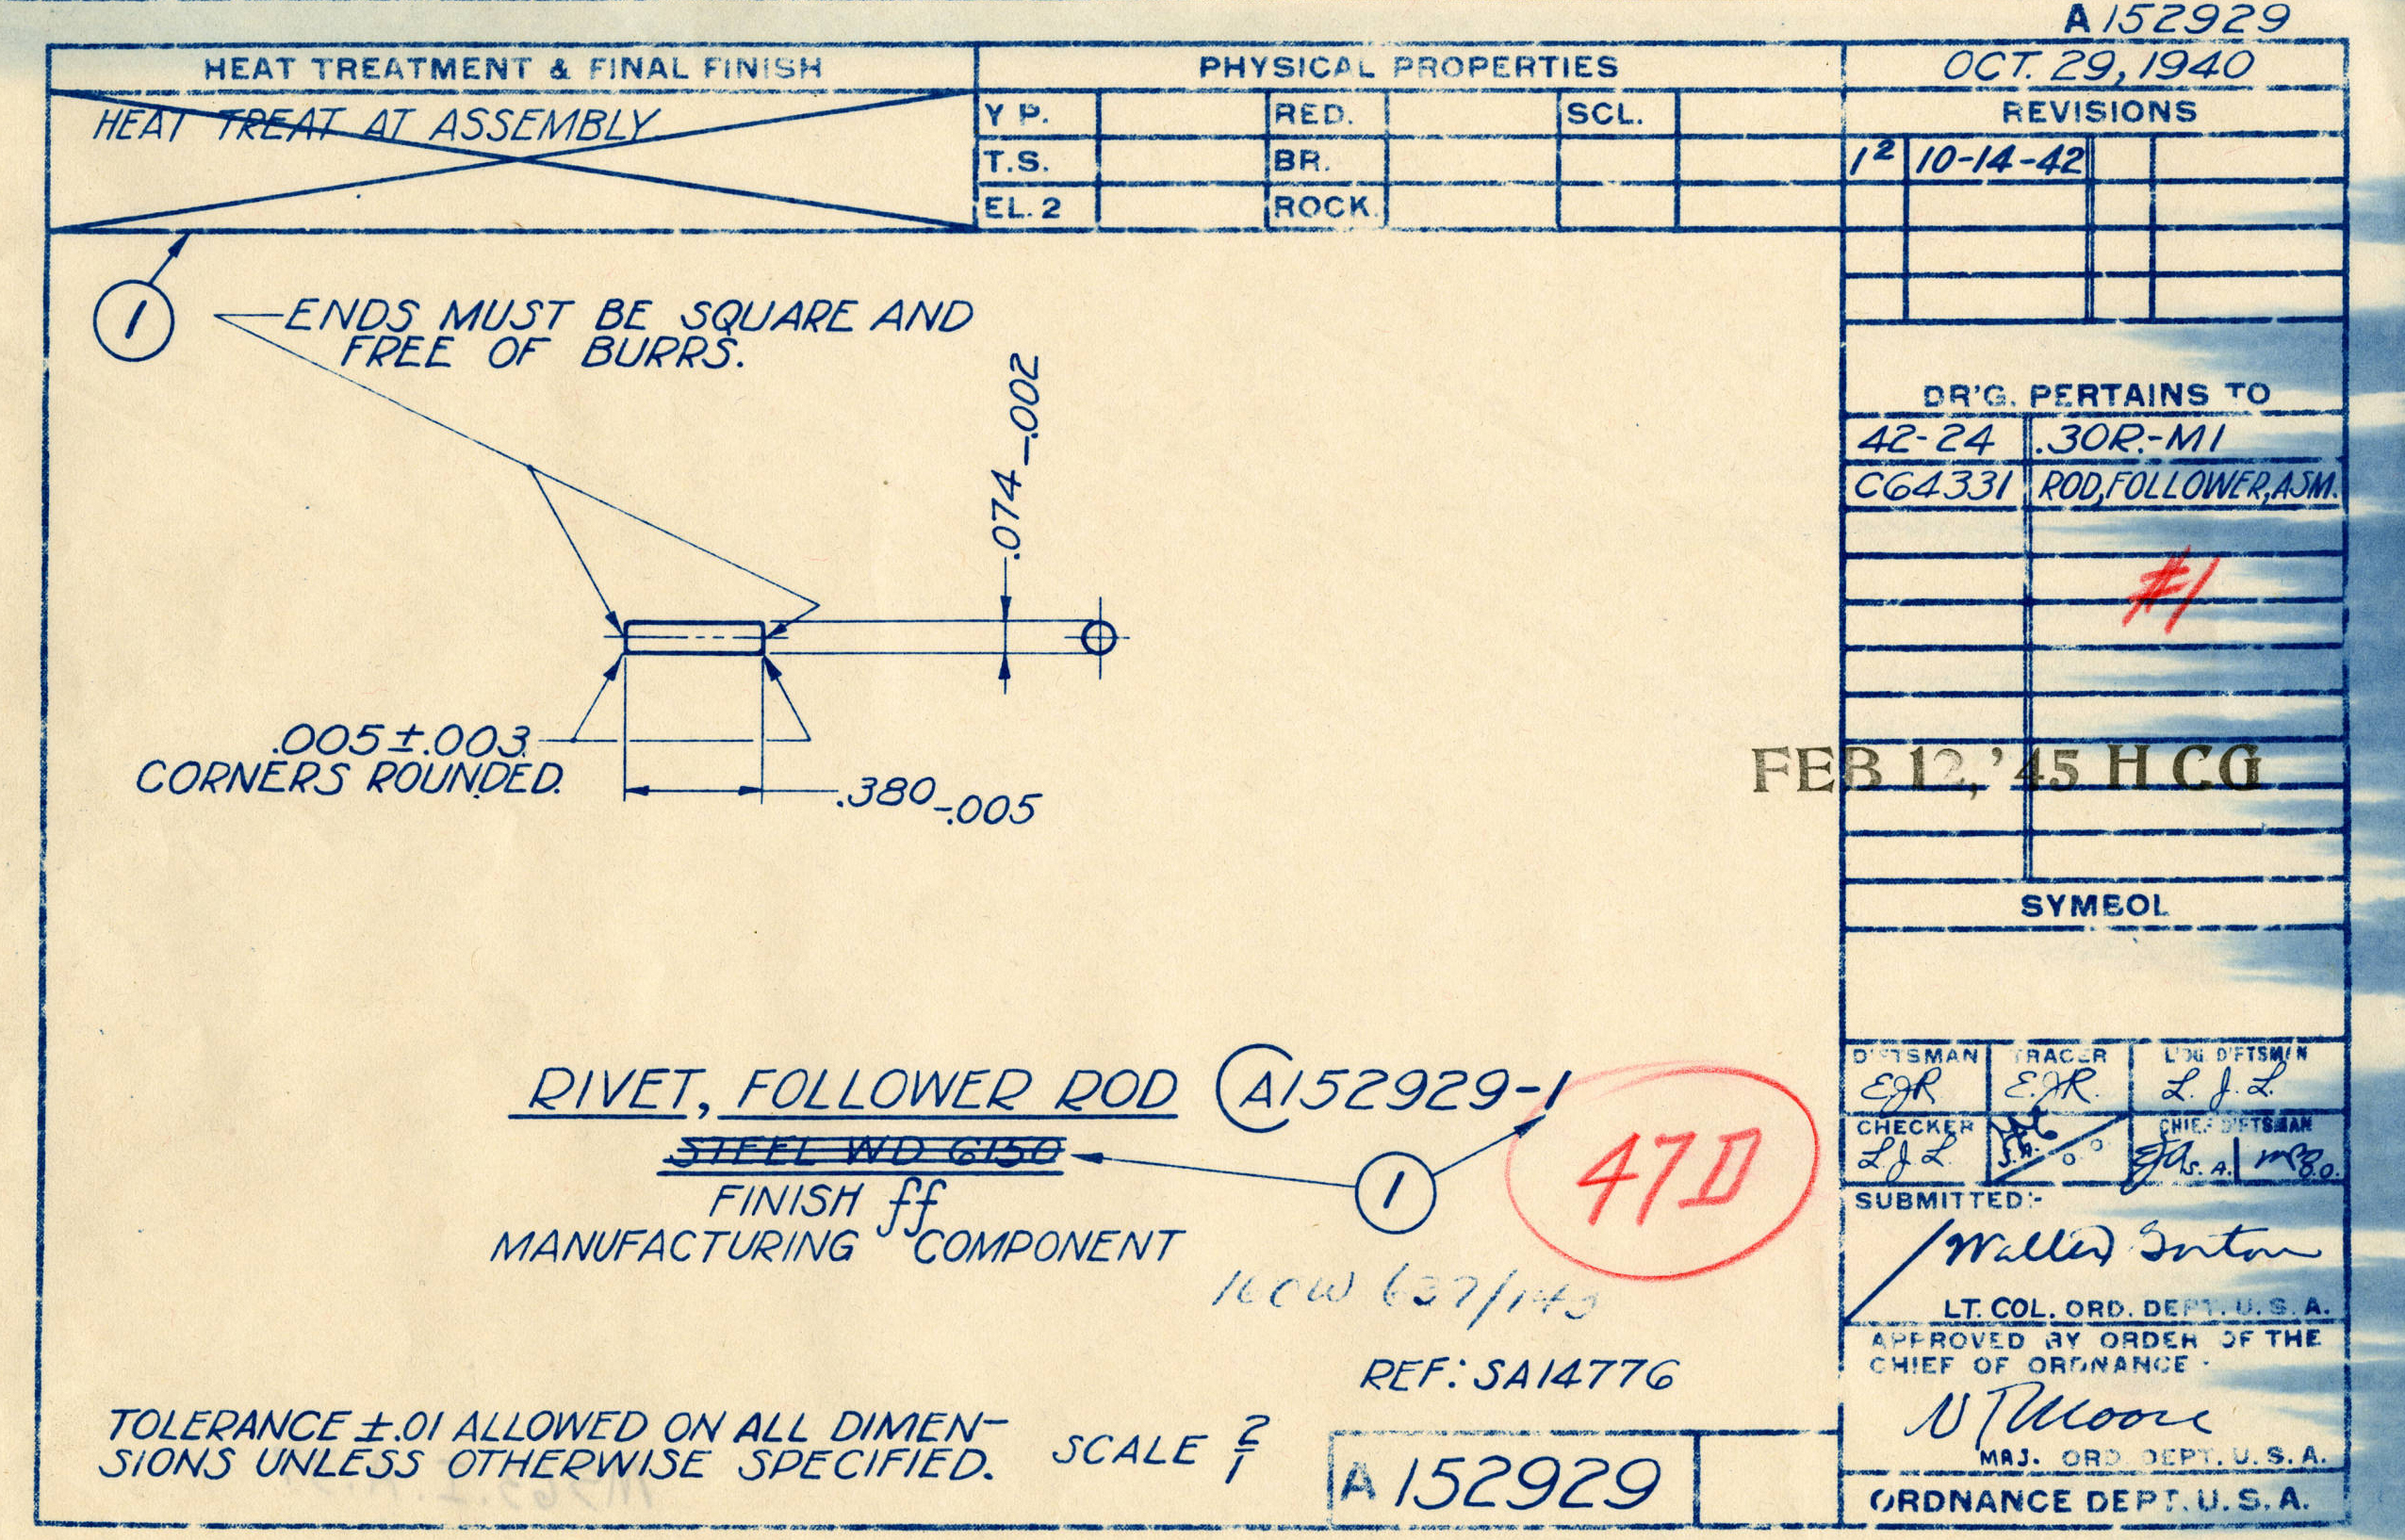 A 152929
HEAT TREATMENT & FINAL FINISH
HEAT TREAT AT ASSEMBLY
PHYSICAL PROPERTIES
Y P. RED. SCL.
T.S. BR.
EL. 2 ROCK.
OCT. 29, 1940
REVISIONS
1² 10-14-42
1
ENDS MUST BE SQUARE AND
FREE OF BURRS.
.074 -.002
.005 ±.003
CORNERS ROUNDED.
.380 -.005
DR'G. PERTAINS TO
42-24 .30R.-M1
C64331 ROD, FOLLOWER, ASM.
#1
FEB 12, '45 H C G
SYMBOL
RIVET, FOLLOWER ROD A152929-1
STEEL WD 6150
1
FINISH ff
MANUFACTURING COMPONENT
47D
REF: SA14776
TOLERANCE ±.01 ALLOWED ON ALL DIMEN-
SIONS UNLESS OTHERWISE SPECIFIED.
SCALE 2/1
A 152929
D'FTSMAN TRACER L'DG. D'FTSMAN
EJR E.JR. L. J. L.
CHECKER CHIEF D'FTSMAN
L J L S.A. S.A.
SUBMITTED:-
LT. COL. ORD. DEPT. U. S. A.
APPROVED BY ORDER OF THE
CHIEF OF ORDNANCE
Moore
MAJ. ORD. DEPT. U. S. A.
ORDNANCE DEPT. U. S. A.